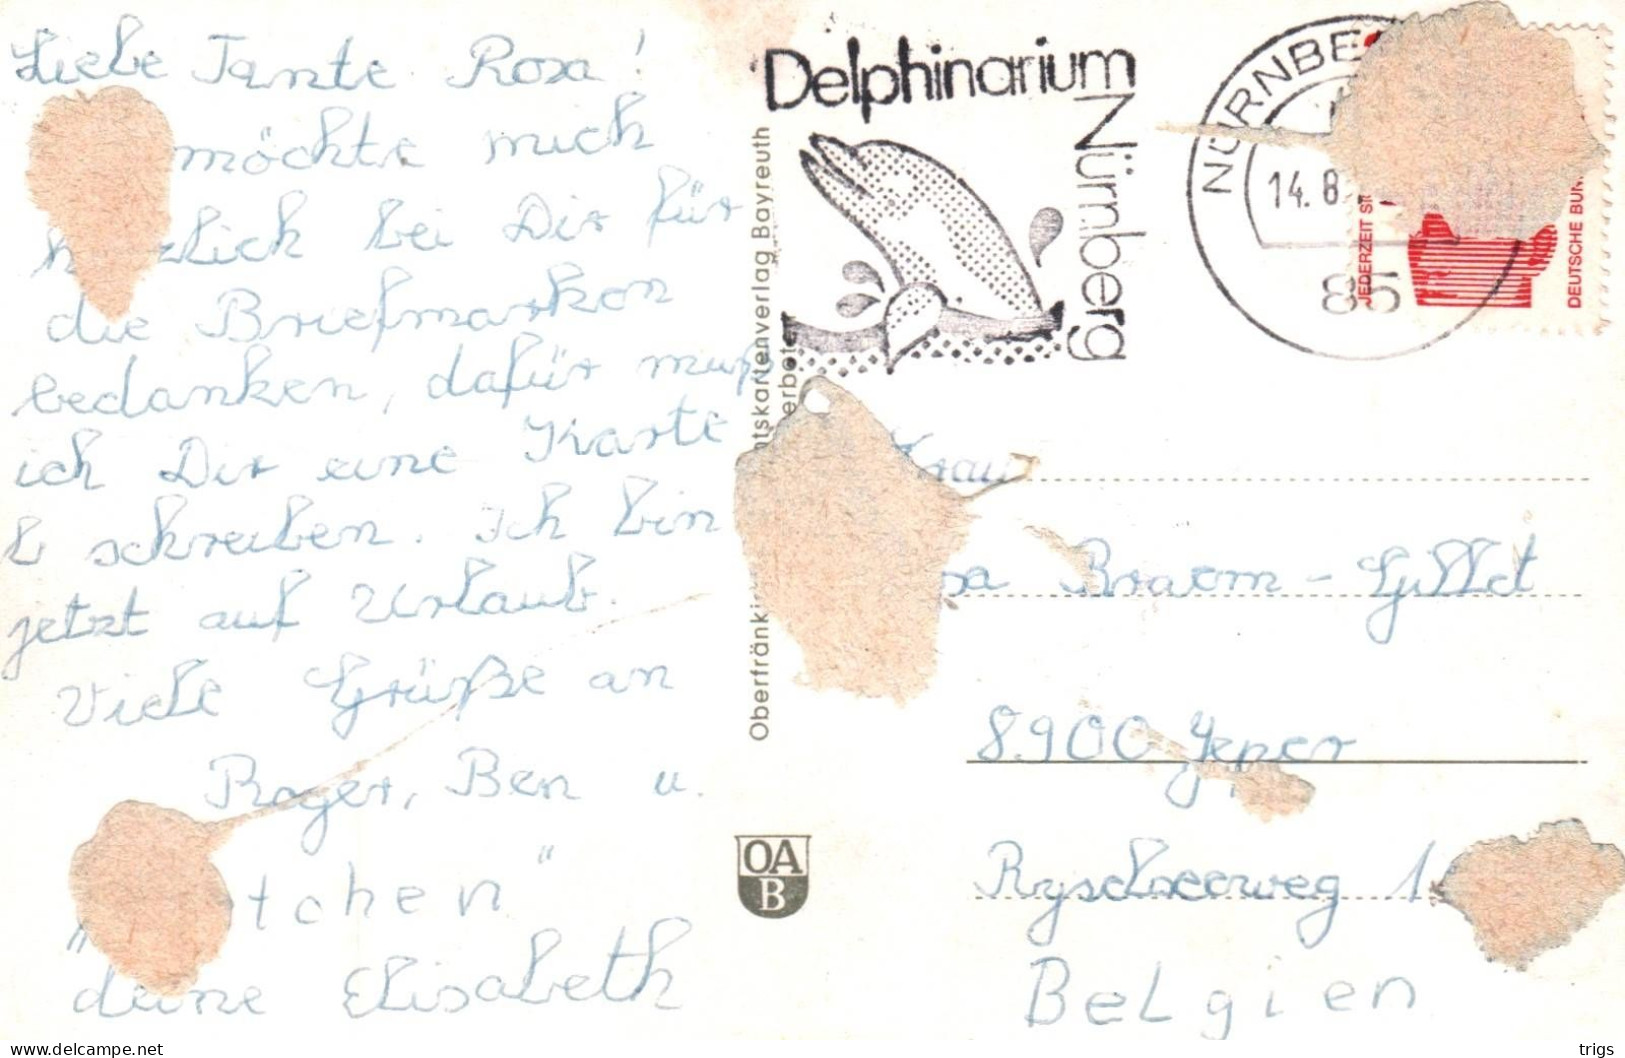 Liebe Tante Rosa!
möchte mich
herzlich bei Dir für
die Briefmarken
bedanken, dafür muß
ich Dir eine Karte
schreiben. Ich bin
jetzt auf Urlaub.
Viele Grüße an
Roger, Ben u.
"tchen"
deine Elisabeth
Delphinarium
Nürnberg
NÜRNBE
14.8.
85
JEDERZEIT SI
DEUTSCHE BUN
Oberfränki
tskartenverlag Bayreuth
erbote
OA
B
Frau
sa Braem - Gillet
8900 Yeper
Ryselseerweg 1
Belgien
delcampe.net
trigs